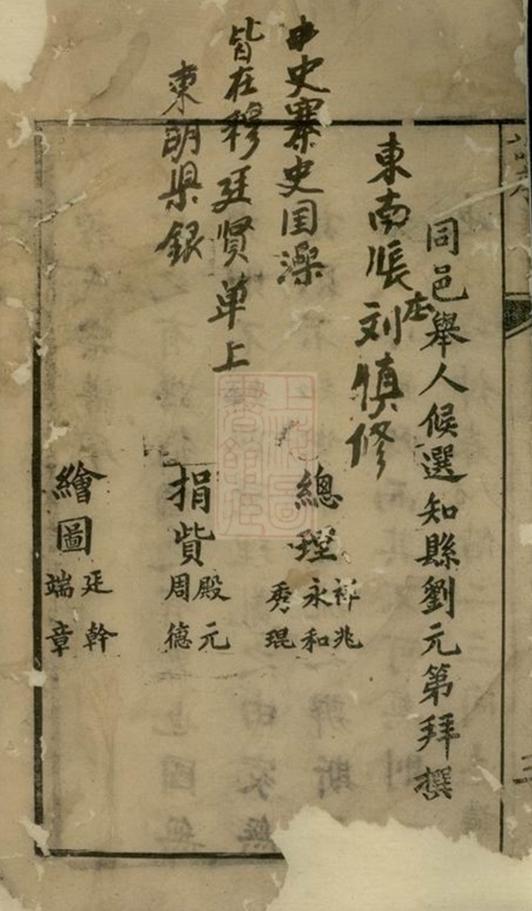 同邑舉人候選知縣劉元第拜撰
東南張庄刘慎修
中史寨史国澡
皆在穆廷贤单上
東明梁銀
總理
祥兆
永和
秀琨
捐貲
殿元
周德
繪圖
廷幹
端章